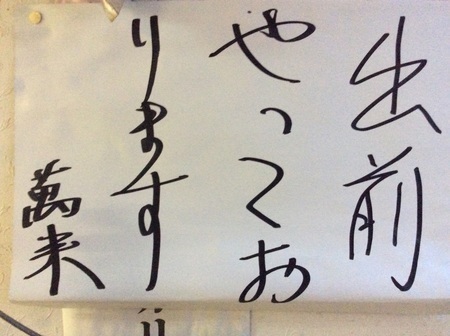 出前
やってお
ります
萬来